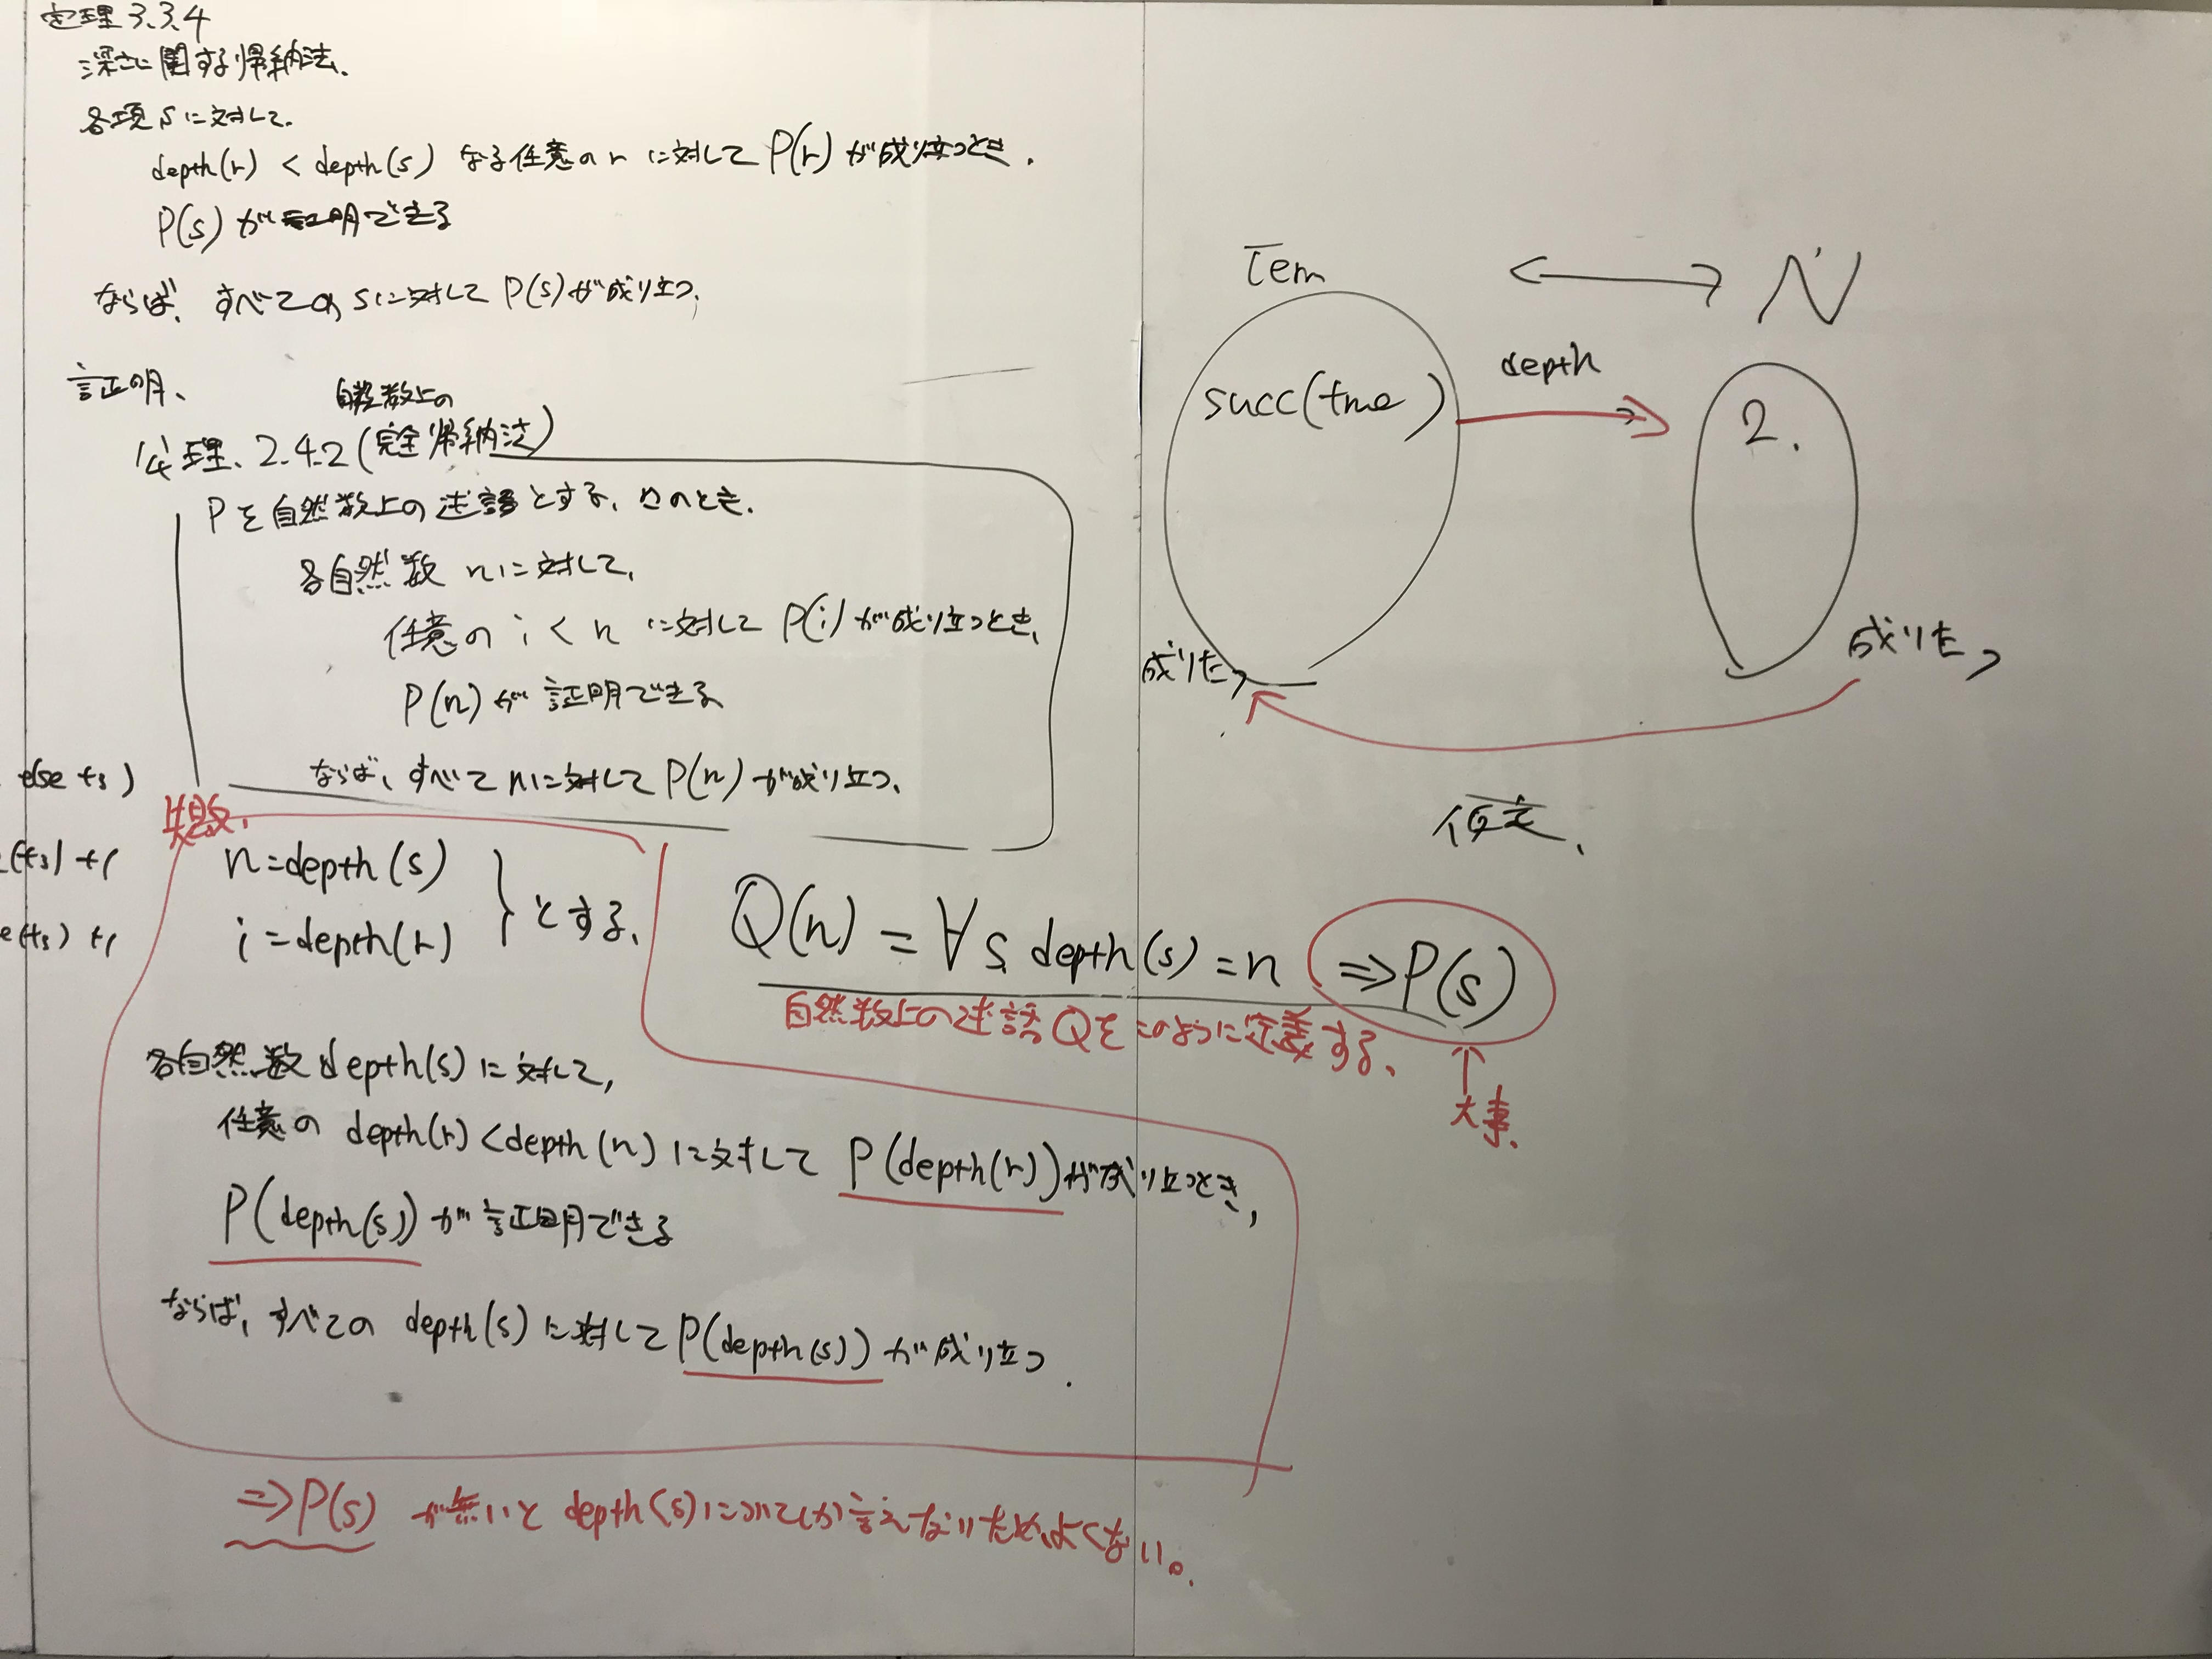 定理3.3.4
深さに関する帰納法.
各項sに対して.
depth(r) < depth(s) なる任意のrに対してP(r)が成り立つとき.
P(s)が証明できる
ならば、すべてのsに対してP(s)が成り立つ.
証明、
自然数上の
公理. 2.4.2(完全帰納法)
Pを自然数上の述語とする. このとき.
各自然数 nに対して,
任意の i < n に対して P(i)が成り立つとき,
P(n)が証明できる
ならば、すべてnに対してP(n)が成り立つ.
else t3)
(t3) +1
e(t3) +1
失敗.
n=depth(s)
i=depth(r)
} とする.
各自然数depth(s)に対して,
任意の depth(r)<depth(n)に対して P(depth(r))が成り立つとき,
P(depth(s))が証明できる
ならば、すべての depth(s)に対してP(depth(s))が成り立つ.
⇒P(s) が無いと depth(s)についてしか言えないため、よくない。
Term ⟷ N
succ(true)
depth
2.
成りたつ
成りたつ
仮定、
Q(n) = ∀s. depth(s)=n ⇒P(s)
自然数上の述語Qをこのように定義する.
↑
大事.